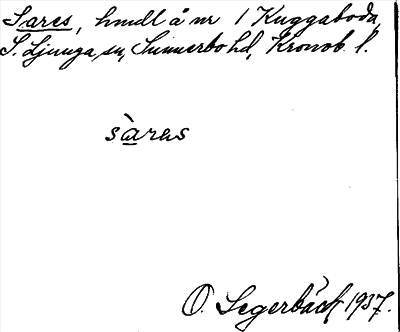 Sares, hmdl å nr 1 Kuggaboda,
S. Ljunga sn, Sunnerbo hd, Kronob. l.
sàres
O. Segerbäck 1937.